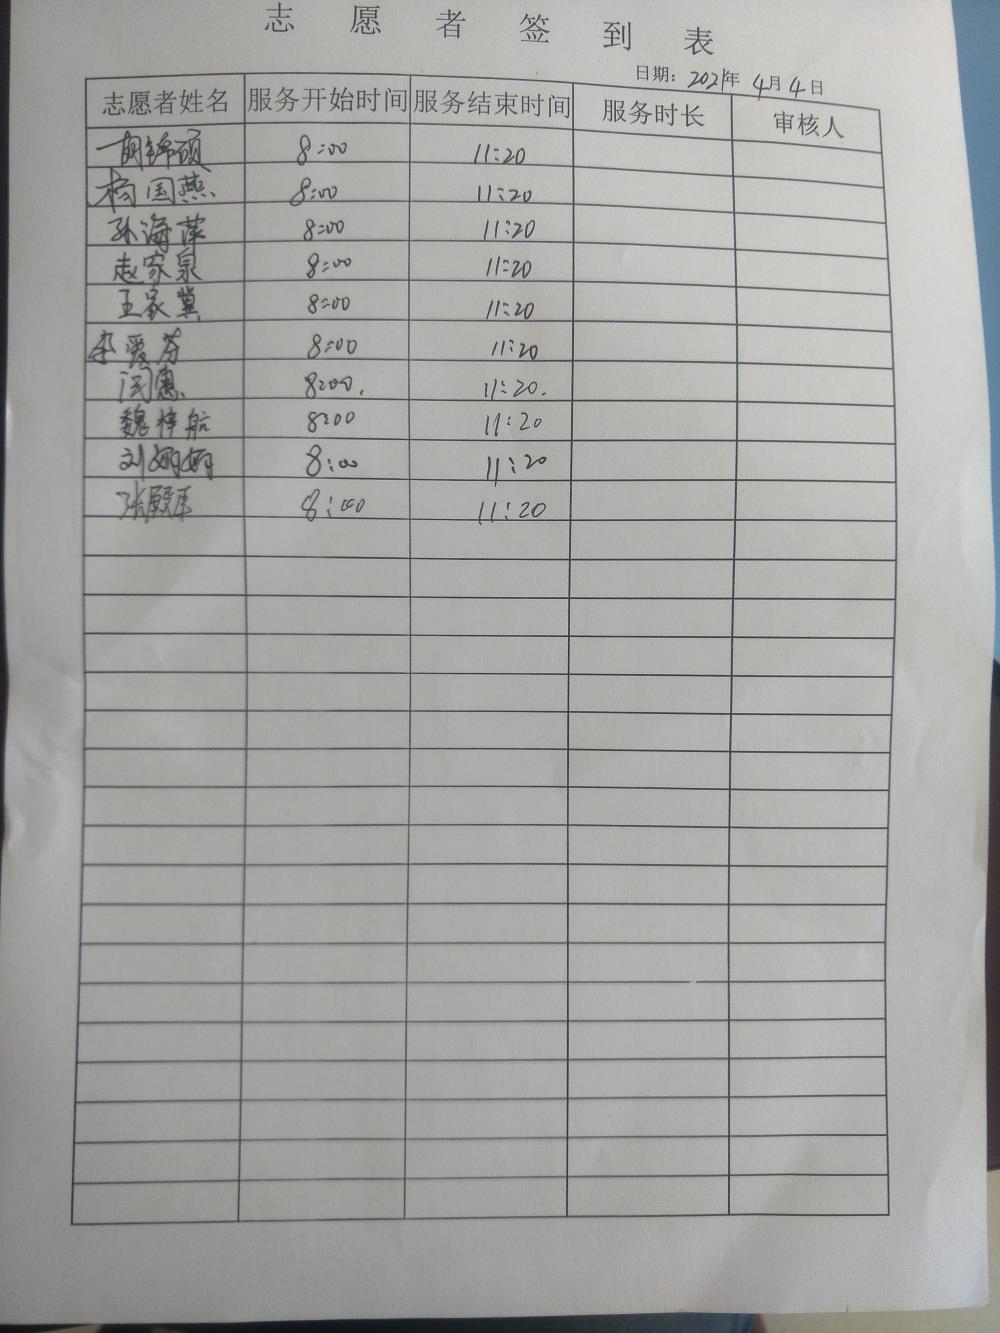 志愿者签到表
日期：2021年4月4日
志愿者姓名 服务开始时间 服务结束时间 服务时长 审核人
胡锦硕 8:00 11:20
杨国燕 8:00 11:20
孙海萍 8:00 11:20
赵家泉 8:00 11:20
王家冀 8:00 11:20
李爱芬 8:00 11:20
闵惠 8:00. 11:20.
魏梓航 8:00 11:20
刘娜娜 8:00 11:20
张殿军 8:00 11:20